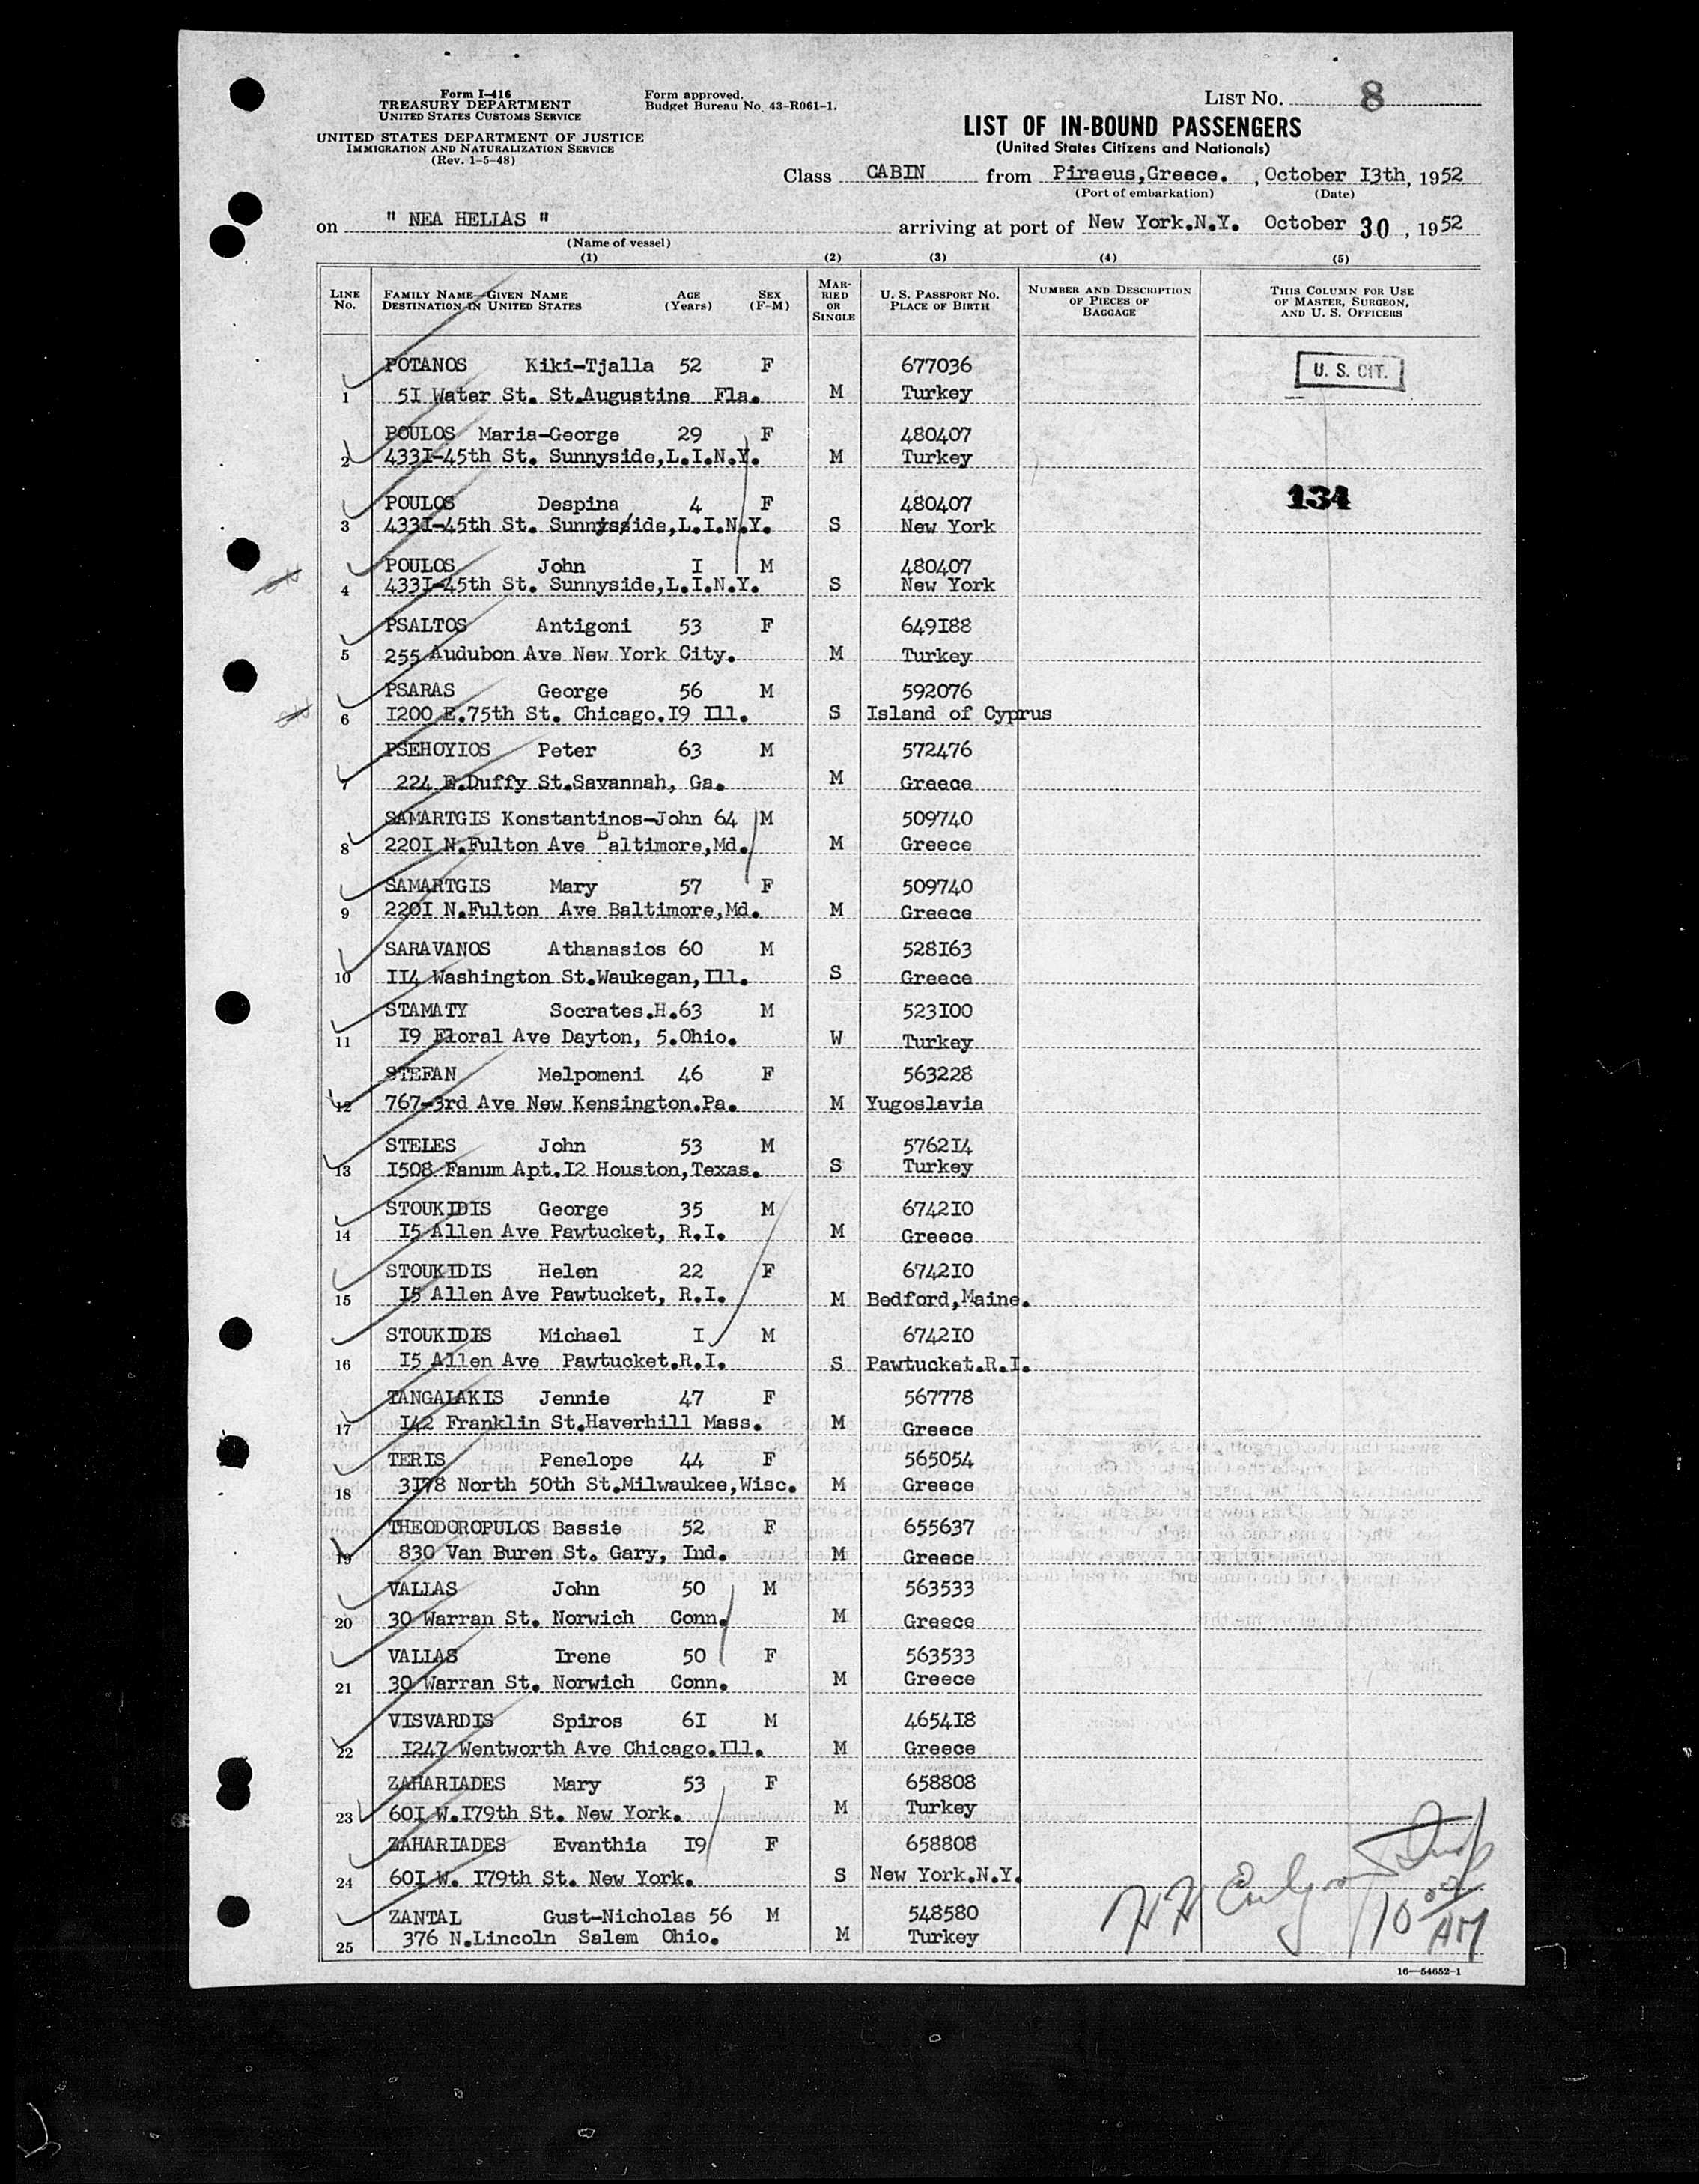 Form I-416
TREASURY DEPARTMENT
UNITED STATES CUSTOMS SERVICE
UNITED STATES DEPARTMENT OF JUSTICE
IMMIGRATION AND NATURALIZATION SERVICE
(Rev. 1-5-48)
Form approved.
Budget Bureau No. 43-R061-1.
LIST NO. 8
LIST OF IN-BOUND PASSENGERS
(United States Citizens and Nationals)
Class CABIN from Piraeus,Greece. , October I3th, 1952
(Port of embarkation) (Date)
on " NEA HELLAS " arriving at port of New York.N.Y. October 30 , 1952
(Name of vessel)
(1) (2) (3) (4) (5)
LINE NO. FAMILY NAME—GIVEN NAME DESTINATION IN UNITED STATES AGE (Years) SEX (F-M) MARRIED OR SINGLE U. S. PASSPORT NO. PLACE OF BIRTH NUMBER AND DESCRIPTION OF PIECES OF BAGGAGE THIS COLUMN FOR USE OF MASTER, SURGEON, AND U. S. OFFICERS
POTANOS Kiki-Tjalla 52 F 677036 U. S. CIT.
1 5I Water St. St.Augustine Fla. M Turkey
POULOS Maria-George 29 F 480407
2 433I-45th St. Sunnyside,L.I.N.Y. M Turkey
POULOS Despina 4 F 480407 134
3 433I-45th St. Sunnysside,L.I.N.Y. S New York
POULOS John I M 480407
4 433I-45th St. Sunnyside,L.I.N.Y. S New York
PSALTOS Antigoni 53 F 649I88
5 255 Audubon Ave New York City. M Turkey
PSARAS George 56 M 592076
6 I200 E.75th St. Chicago.I9 Ill. S Island of Cyprus
PSEHOYIOS Peter 63 M 572476
7 224 E.Duffy St.Savannah, Ga. M Greece
SAMARTGIS Konstantinos-John 64 M 509740
8 220I N.Fulton Ave Baltimore,Md. M Greece
SAMARTGIS Mary 57 F 509740
9 220I N.Fulton Ave Baltimore,Md. M Greece
SARAVANOS Athanasios 60 M 528I63
10 II4 Washington St.Waukegan,Ill. S Greece
STAMATY Socrates.H.63 M 523I00
11 I9 Floral Ave Dayton, 5.Ohio. W Turkey
STEFAN Melpomeni 46 F 563228
12 767-3rd Ave New Kensington.Pa. M Yugoslavia
STELES John 53 M 5762I4
13 I508 Fanum Apt.I2 Houston,Texas. S Turkey
STOUKIDIS George 35 M 6742I0
14 I5 Allen Ave Pawtucket, R.I. M Greece
STOUKIDIS Helen 22 F 6742I0
15 I5 Allen Ave Pawtucket, R.I. M Bedford,Maine.
STOUKIDIS Michael I M 6742I0
16 I5 Allen Ave Pawtucket.R.I. S Pawtucket.R.I.
TANGALAKIS Jennie 47 F 567778
17 I42 Franklin St.Haverhill Mass. M Greece
TERIS Penelope 44 F 565054
18 3I78 North 50th St.Milwaukee,Wisc. M Greece
THEODOROPULOS Bassie 52 F 655637
19 830 Van Buren St. Gary, Ind. M Greece
VALLAS John 50 M 563533
20 30 Warran St. Norwich Conn. M Greece
VALLAS Irene 50 F 563533
21 30 Warran St. Norwich Conn. M Greece
VISVARDIS Spiros 6I M 4654I8
22 I247 Wentworth Ave Chicago.Ill. M Greece
ZAHARIADES Mary 53 F 658808
23 60I W.I79th St. New York. M Turkey
ZAHARIADES Evanthia I9 F 658808
24 60I W. I79th St. New York. S New York.N.Y.
ZANTAL Gust-Nicholas 56 M 548580
25 376 N.Lincoln Salem Ohio. M Turkey
10 AM
16—54652-1